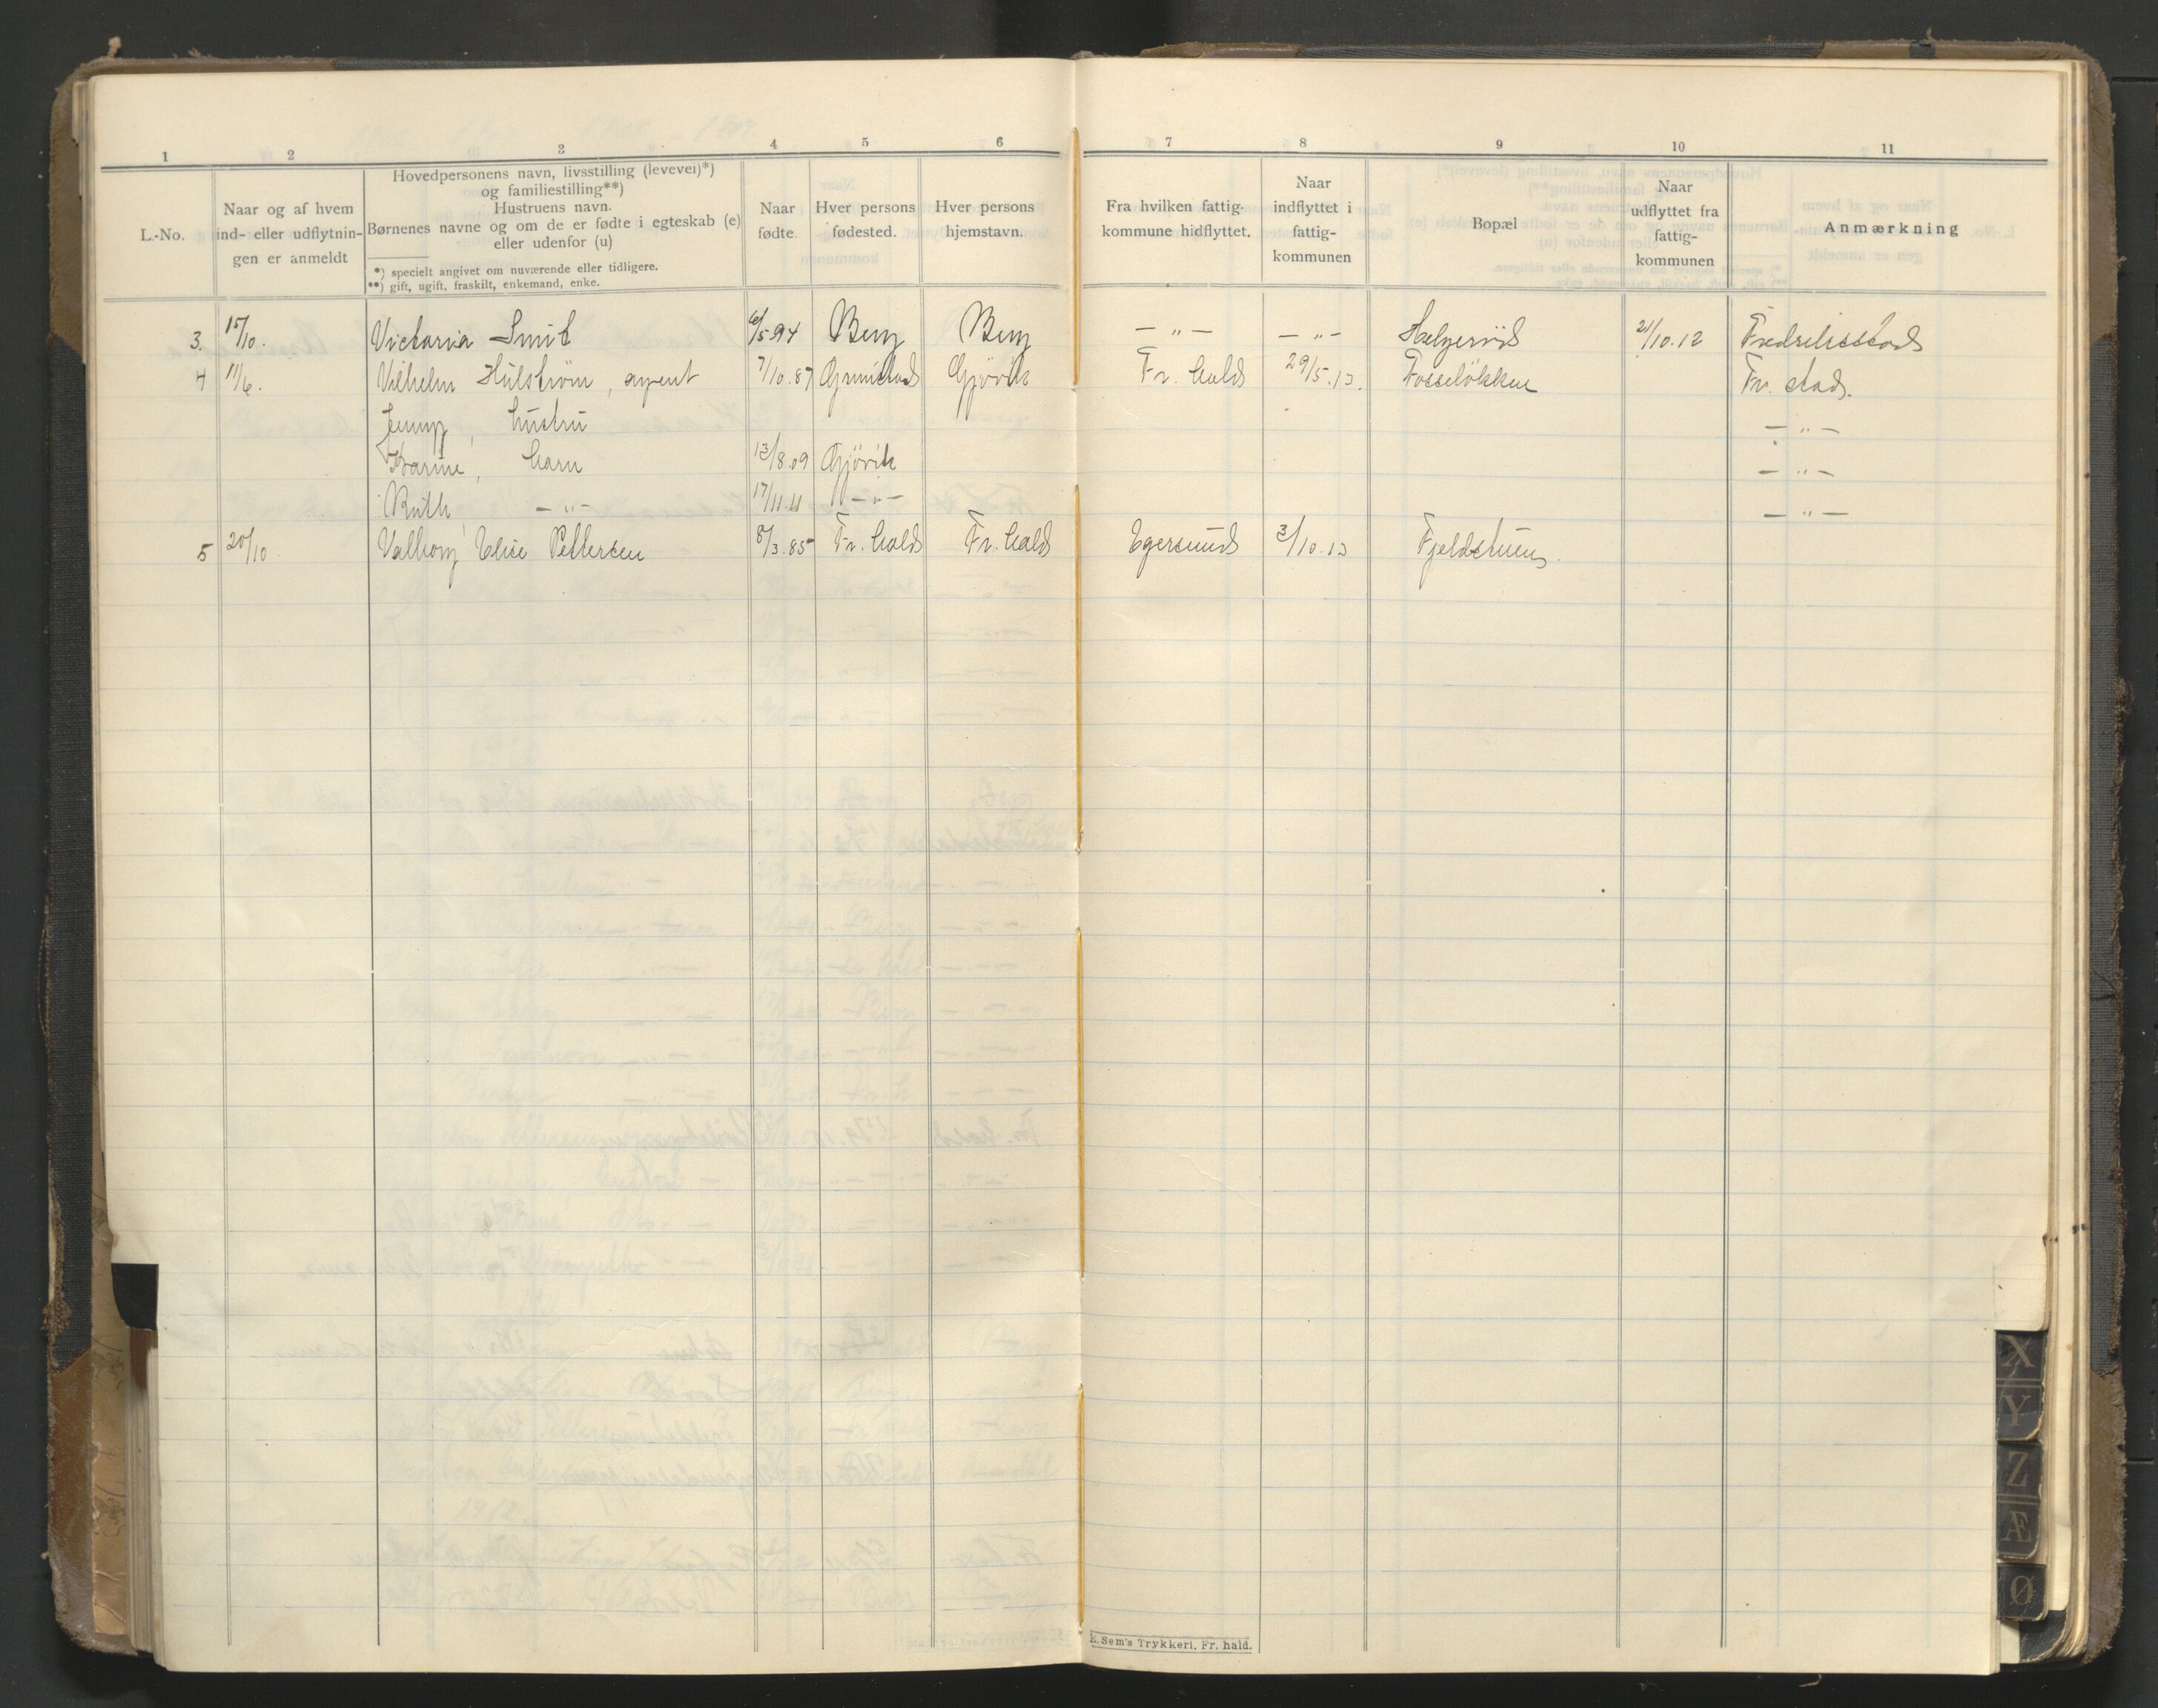 1 2 3 4 5 6 7 8 9 10 11
L.-No.
Naar og af hvem
ind- eller udflytnin-
gen er anmeldt
Hovedpersonens navn, livsstilling (levevei)*)
og familiestilling**)
Hustruens navn.
Børnenes navne og om de er fødte i egteskab (e)
eller udenfor (u)
*) specielt angivet om nuværende eller tidligere.
**) gift, ugift, fraskilt, enkemand, enke.
Naar
fødte.
Hver persons
fødested.
Hver persons
hjemstavn.
Fra hvilken fattig-
kommune hidflyttet.
Naar
indflyttet i
fattig-
kommunen
Bopæl
Naar
udflyttet fra
fattig-
kommunen
Anmærkning
3. 15/10. Victoria Smit 6/5 94 Berg Berg — " — — " — 21/10.12 Fredrikstad
4 11/6. Vilhelm Hülström, agent 7/10.87 Grimstad Gjövik Fr. hald 29/5.13. Fosseløkken Fr. stad.
Jenny, hustru — " —
Karine, barn 13/8.09 Gjövik — " —
Ruth — " — 17/11.11 — " — — " —
5 20/10 Valborg Elise Pettersen 8/3.85 Fr. hald Fr. hald Egersund 3/10.13 Fjeldstuen.
E. Sem's Trykkeri, Fr. hald.
X
Y
Z
Æ
Ø